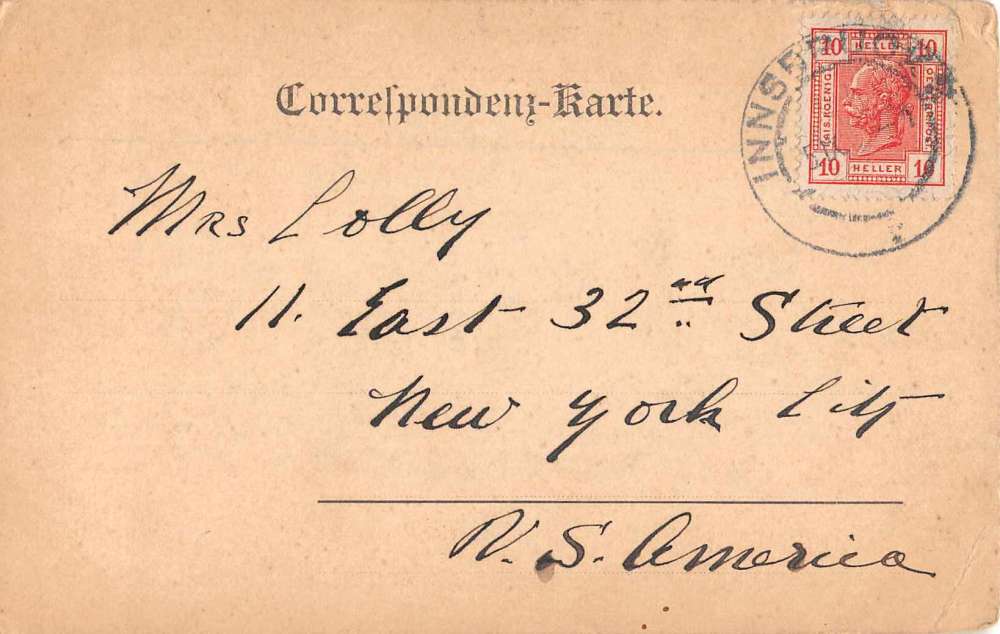 Correspondenz-Karte.
10 HELLER 10
KAIS. KOENIG.
10 HELLER 10
INNSBRUCK
Mrs Lolly
11. East 32nd Street
New York City
U.S. America